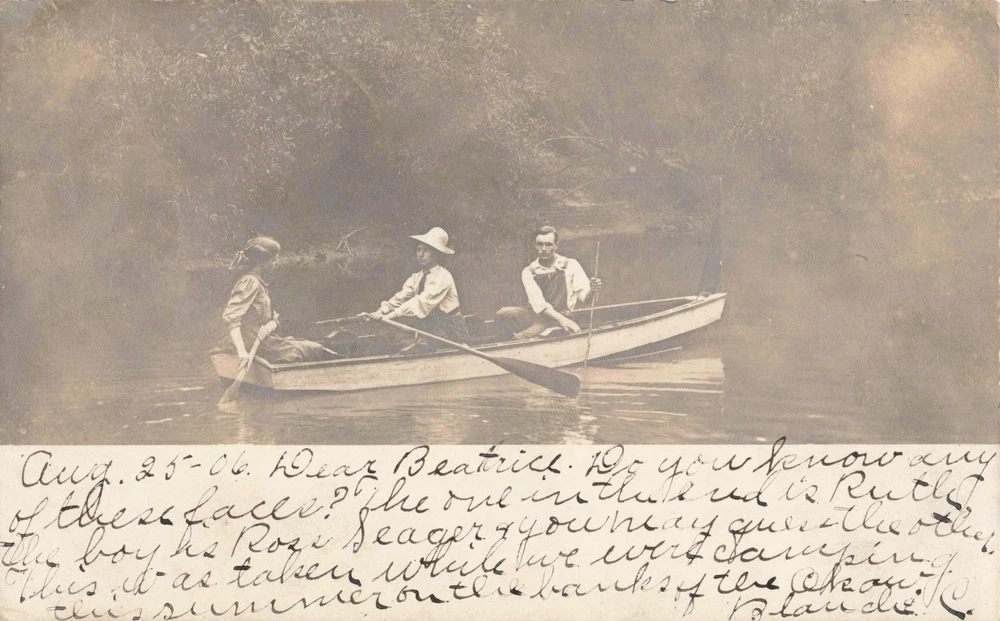 Aug. 25-06. Dear Beatrice. Do you know any
of these faces? The one in the end is Ruth
the boy is Ross Seager & you may guess the other.
This was taken while we were camping
this summer on the banks of the Okaw.
Blanche C.